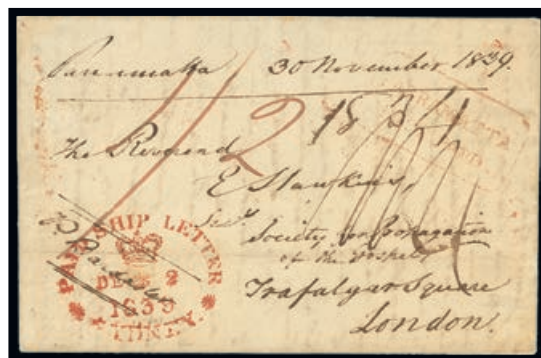 Parramatta 30 November 1839.
1/2
The Reverend
E Hawkins,
Secy
Society for Propagation
of the Gospel
Trafalgar Square
London.
PAID SHIP LETTER
DE 2
1839
SYDNEY.